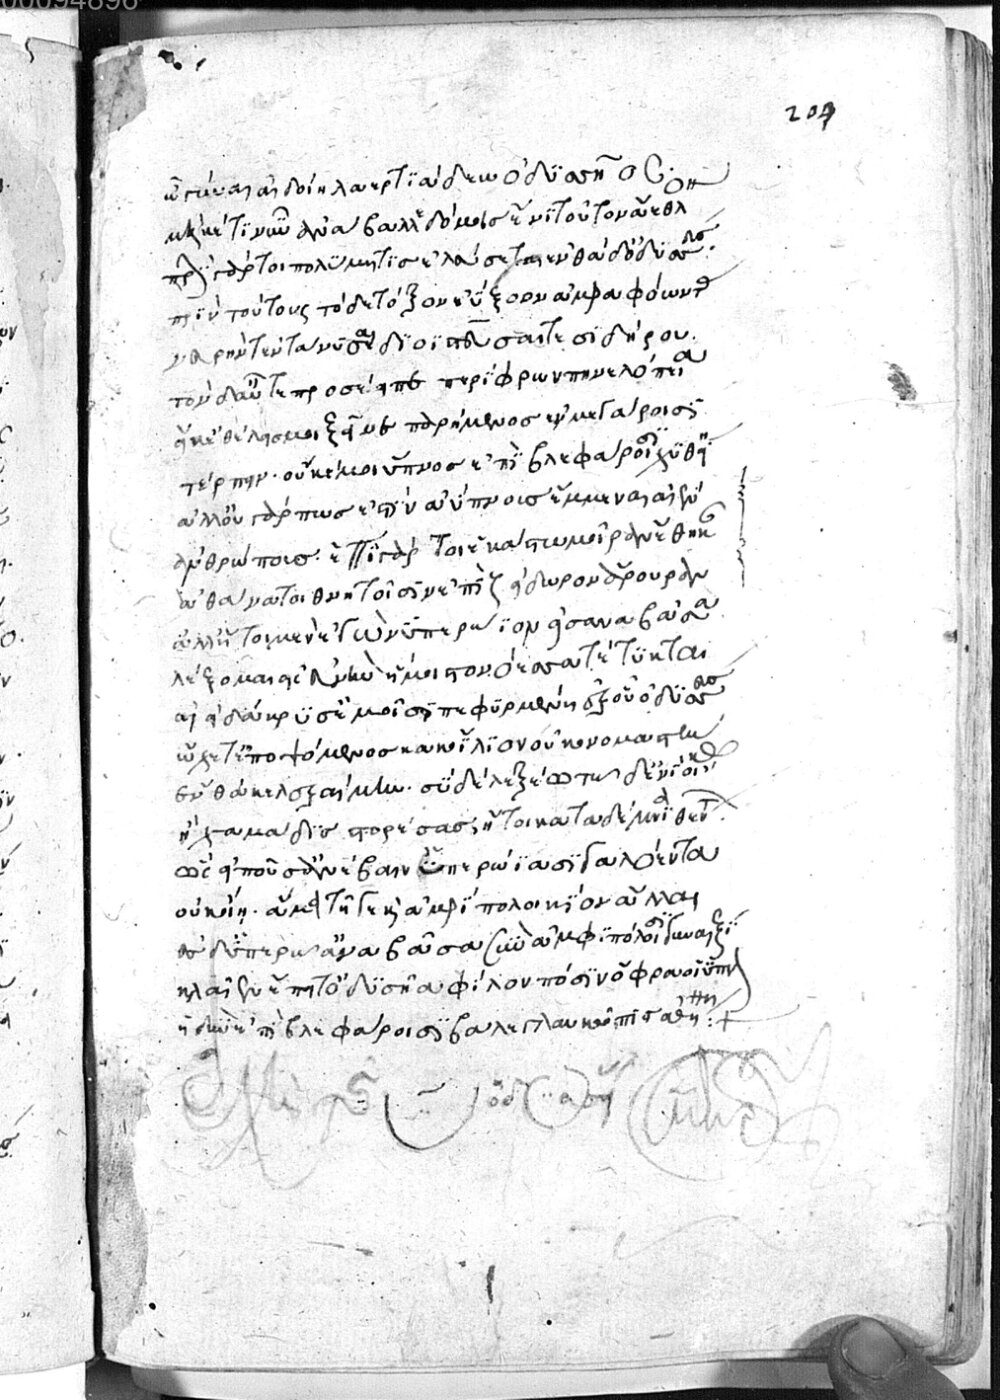 00094896
204
ὦ γύναι αἰδοίη λαερτϊάδεω ὀδϋσῆος
μηκέτϊ νῦν ἀνάβαλλε δόμοις ἔνϊ τοῦτον ἄεθλον
πρὶν γάρ τοι πολύμητϊς ἐλεύσεται ἐνθάδ' ὀδϋσσεὺς
πρϊν τούτους τόδε τόξον ἐΰξοον ἀμφαφόωντας
νευρήν τ' ἐντανύσαι διοϊστεῦσαί τε σϊδήρου.
τὸν δ' αὖτε προσέειπε περίφρων πηνελόπεια
εἴ κ' ἐθέλοις μοι ξεῖνε παρήμενος ἐν μεγάροισϊ
τέρπειν. οὔ κέ μοι ὕπνος ἐπὶ βλεφάροισι χϋθείη
ἀλλ' οὐ γάρ πως ἐστϊν ἀΰπνους ἔμμεναι αἰεὶ
ἀνθρώπους. ἐπὶ γάρ τοι ἑκάστω μοῖραν ἔθηκαν
ἀθάνατοι θνητοῖσϊν ἐπὶ ζείδωρον ἄρουραν
ἀλλ' ἤτοι μὲν ἐγὼν ὑπερώϊον εἰσαναβᾶσα
λέξομαι εἰς εὐνὴν ἥ μοι στονόεσσα τέτϋκται
αἰεὶ δάκρϋσ' ἐμοῖσϊ πεφϋρμένη ἐξ οὗ ὀδϋσσεὺς
ᾤχετ' ἐποψόμενος κακοΐλϊον οὐκ ὀνομαστὴν
ἔνθά κε λεξαίμην. σϋ δὲ λέξεο τῶδ' ἐνὶ οἴκω
ἢ χαμάδϊς στορέσας ἤ τοι κατὰ δέμνϊα θέντων.
ὣς εἰποῦσ' ἀνέβαιν' ὑπερώϊα σϊγαλόεντα
οὐκ οἴη. ἅμα τῆ γε καὶ ἀμφίπολοι κϊον ἄλλαι
ἐς δ' ὑπερῶ' ἀναβᾶσα σὺν ἀμφιπόλοισι γυναιξὶ
κλαῖεν ἔπειτ' ὀδϋσῆα φίλον πόσϊν ὄφρα οἱ ὕπνον
ἡδὺν ἐπὶ βλεφάροισϊ βάλε γλαυκῶπις ἀθήνη:+